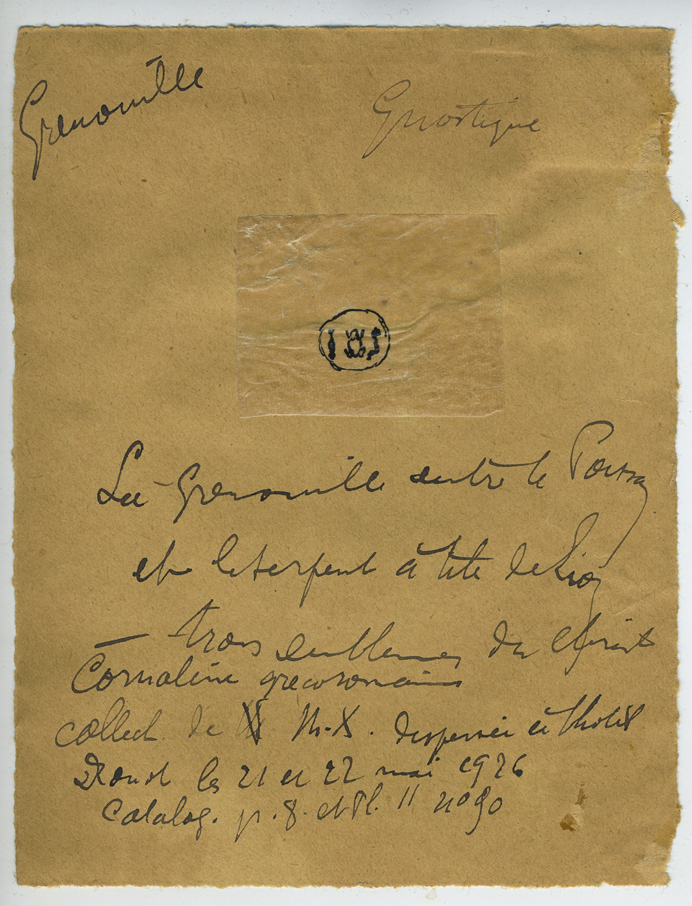 Grenouille
Gnostique
La Grenouille entre le Poisson
et le serpent à tête de Lion
— trois emblèmes du Christ
Cornaline grecoromaine
collect. de M. X. dispersée à l'hotel
Drouot les 21 et 22 mai 1926
Catalog. p. 8. et Pl. II n° 90